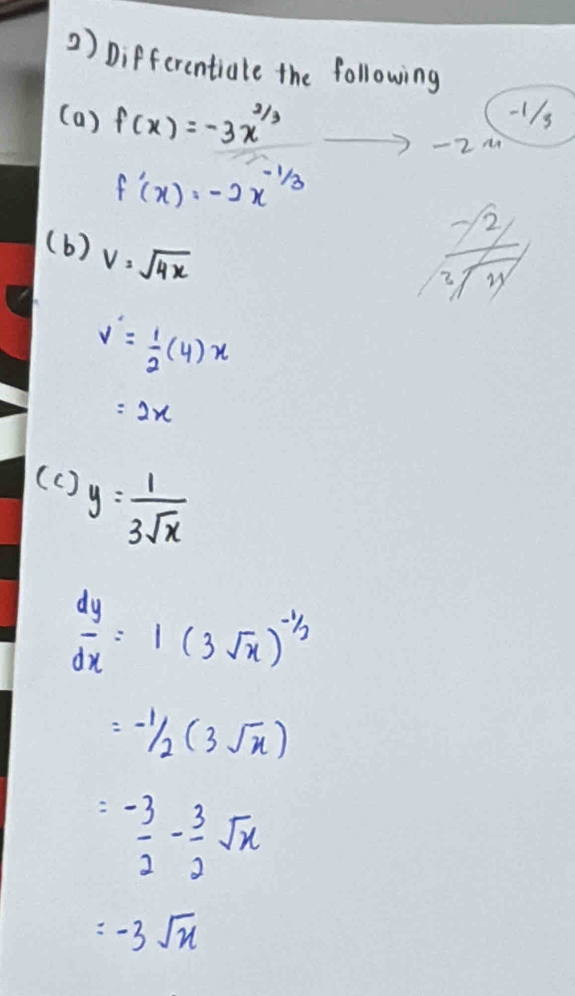 2) Differentiate the following
(a) f(x) = -3x^2/3 → -2x^-1/3
f'(x) = -2x^-1/3
(b) v = √4x
v' = 1/2 (4) x
= 2x
(c) y = 1/3√x
dy/dx = 1 (3√x)^-1/2
= -1/2 (3√x)
= -3/2 - 3/2 √x
= -3√x